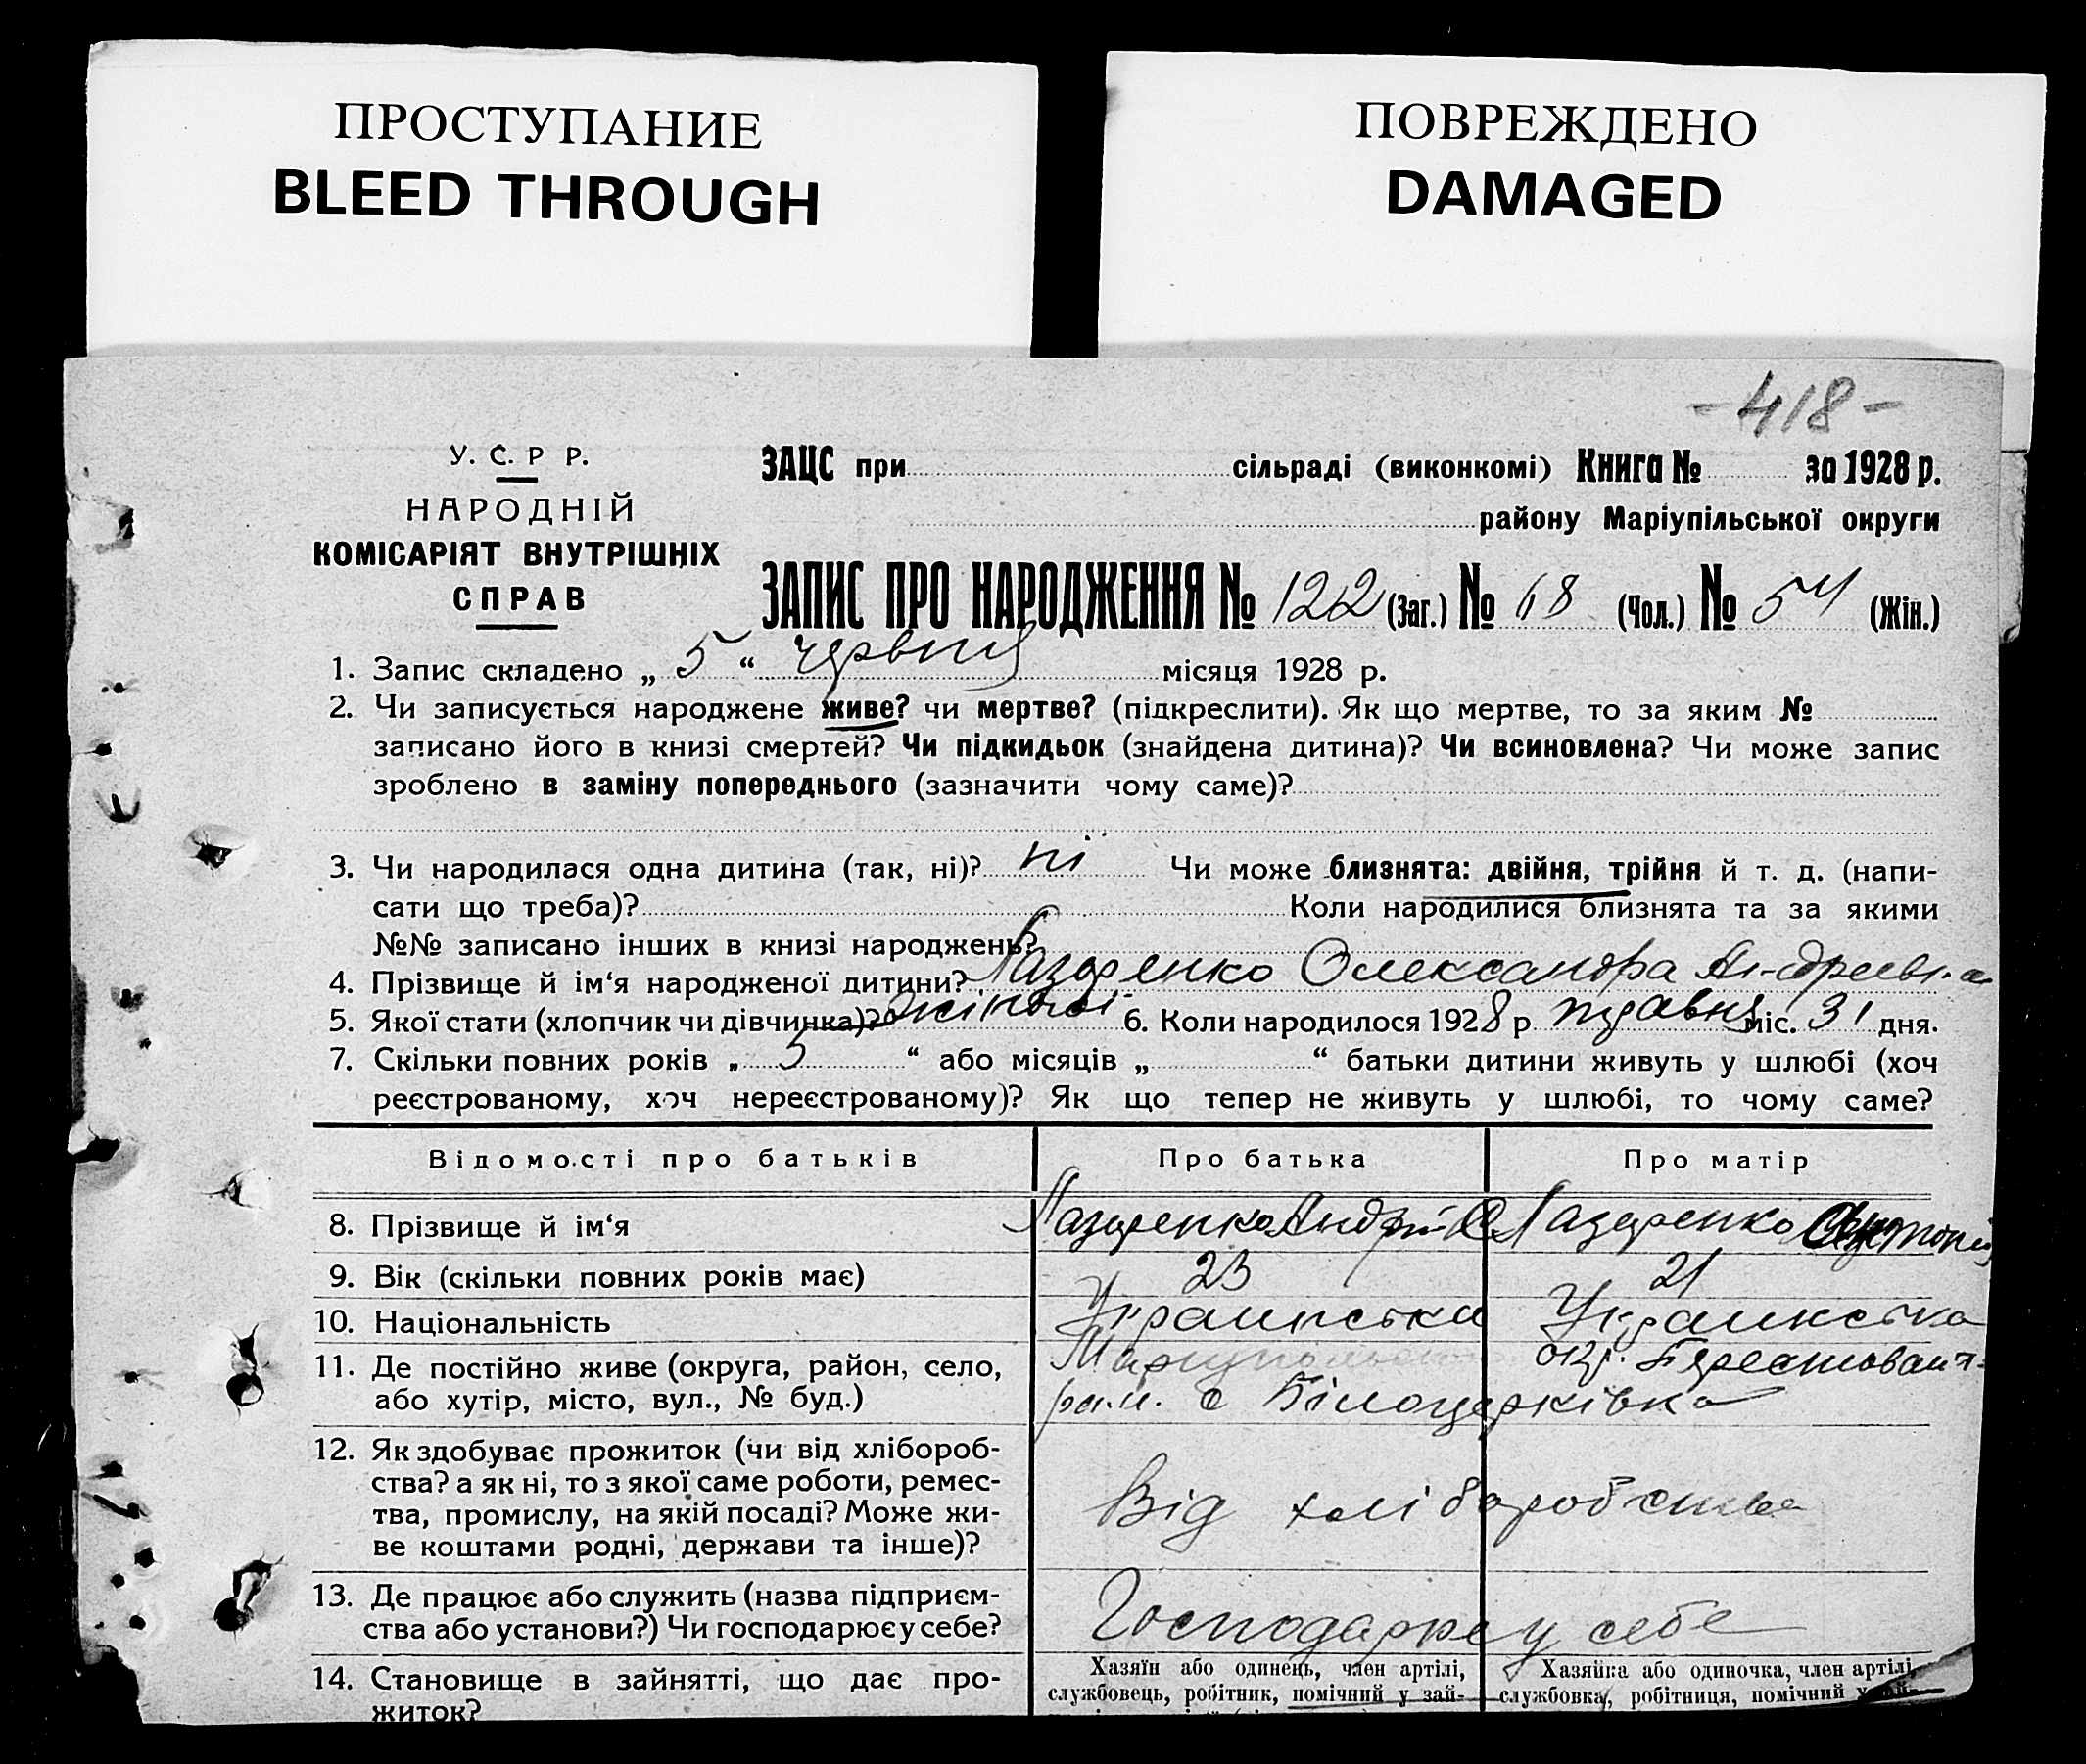 ПРОСТУПАНИЕ
BLEED THROUGH
ПОВРЕЖДЕНО
DAMAGED
-418-
У. С. Р Р.
НАРОДНІЙ
КОМІСАРІЯТ ВНУТРІШНІХ
СПРАВ
ЗАЦС при сільраді (виконкомі) Книга № за 1928 р.
району Маріупільської округи
ЗАПИС ПРО НАРОДЖЕННЯ № 122 (Заг.) № 68 (Чол.) № 54 (Жін.)
1. Запис складено „ 5 “ червня місяця 1928 р.
2. Чи записується народжене живе? чи мертве? (підкреслити). Як що мертве, то за яким №
записано його в книзі смертей? Чи підкидьок (знайдена дитина)? Чи всиновлена? Чи може запис
зроблено в заміну попереднього (зазначити чому саме)?
3. Чи народилася одна дитина (так, ні)? ні Чи може близнята: двійня, трійня й т. д. (напи-
сати що треба)? Коли народилися близнята та за якими
№№ записано інших в книзі народжень?
4. Прізвище й ім‘я народженої дитини? Лазаренко Олександра Андреевна
5. Якої стати (хлопчик чи дівчинка)? жіночої 6. Коли народилося 1928 р. травня міс. 31 дня.
7. Скільки повних років „ 5 “ або місяців „ “ батьки дитини живуть у шлюбі (хоч
реєстрованому, хоч нереєстрованому)? Як що тепер не живуть у шлюбі, то чому саме?
Відомості про батьків Про батька Про матір
8. Прізвище й ім‘я Лазаренко Андрій Лазаренко
9. Вік (скільки повних років має) 23 21
10. Національність Украинська Украинська
11. Де постійно живе (округа, район, село, Мариупольської окр. Берестован.
або хутір, місто, вул., № буд.) рай. с Білоцерківка
12. Як здобуває прожиток (чи від хлібороб-
ства? а як ні, то з якої саме роботи, ремес-
тва, промислу, на якій посаді? Може жи- Від хліборобства
ве коштами родні, держави та інше)?
13. Де працює або служить (назва підприєм-
ства або установи?) Чи господарює у себе? Господарює у себе
14. Становище в зайнятті, що дає про- Хазяїн або одинець, член артілі, Хазяйка або одиночка, член артілі,
житок? службовець, робітник, помічний у зай- службовка, робітниця, помічний у зай-